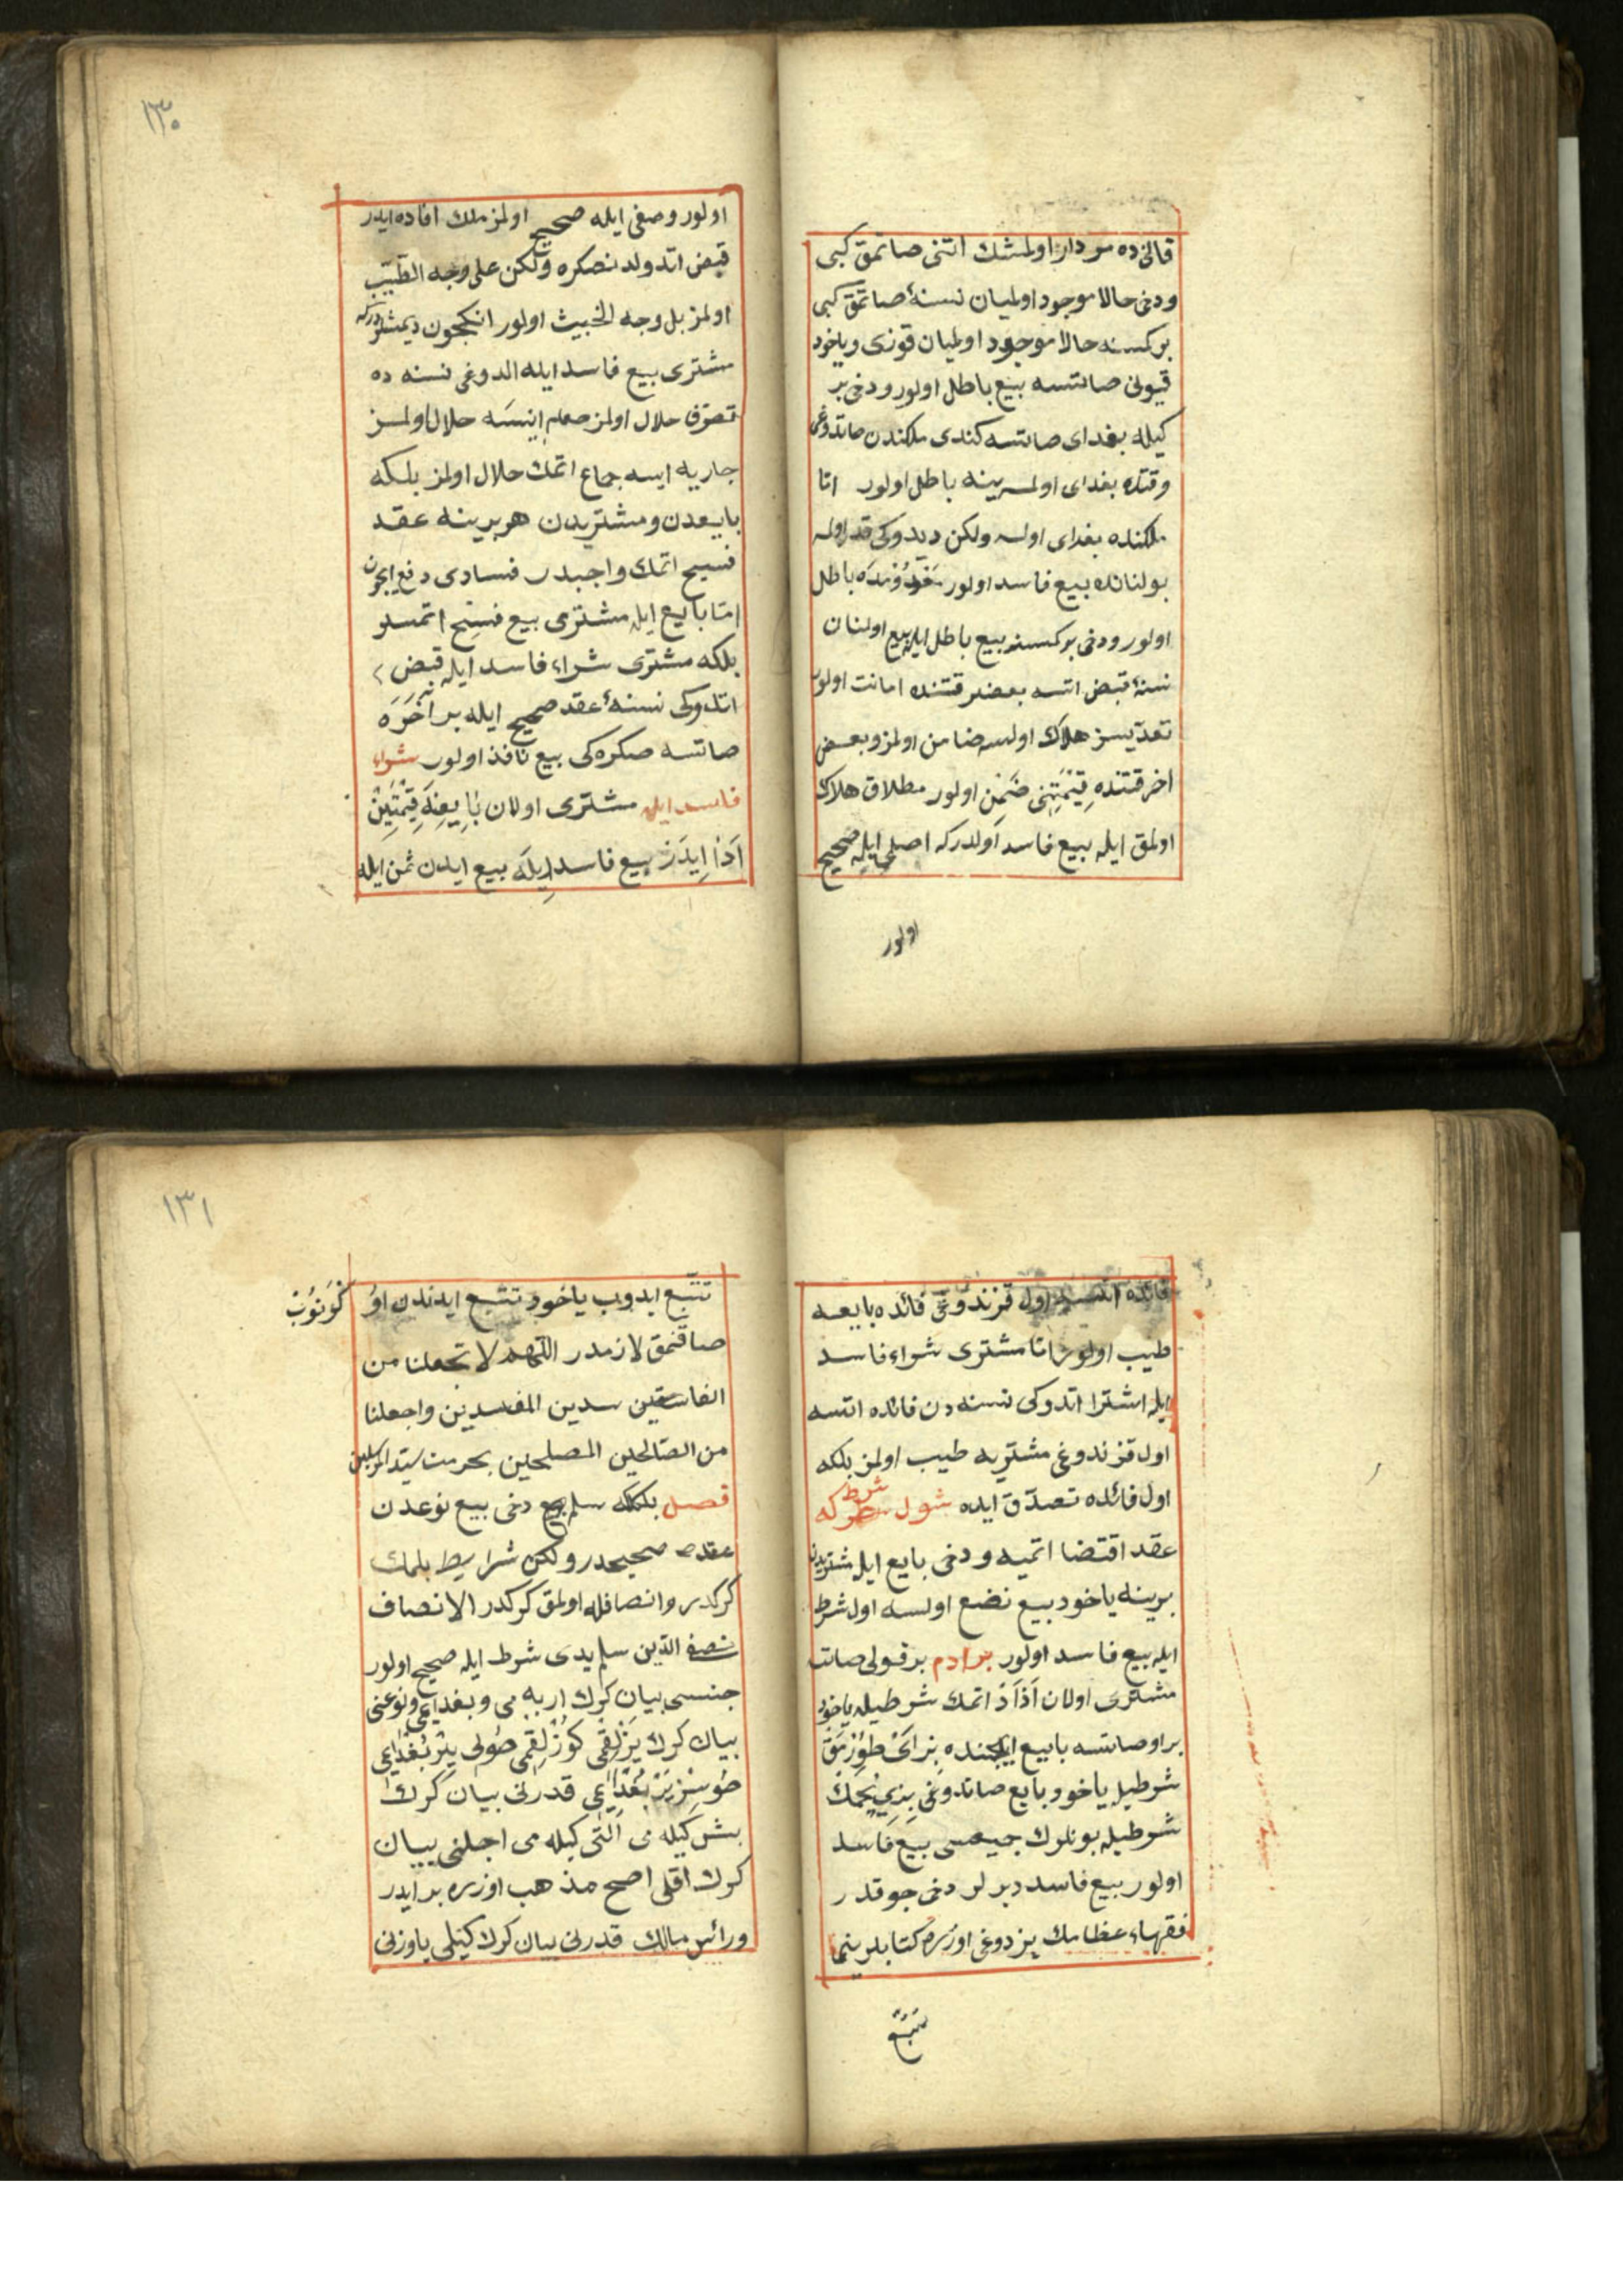 قالنده مردار اولمشك اتنى صاتمق كبى
ودخى حالا موجود اولميان نسنۀ صاتمق كبى
بر كمسنه حالا موجود اولميان قوزى وياخود
قيونى صاتسه بيع باطل اولور ودخى بر
كيله بغداى صاتسه كندى ملكندن صاتدوغى
وقتده بغداى اولمزينه باطل اولور امّا
ملكنده بغداى اوله ولكن ديدوكى قدر اولمه
بولنانده بيع فاسد اولور باطل
اولور ودخى بر كمسنه بيع باطل ايله بيع اولنان
نسنۀ قبض اتسه بعضلر قتنده امانت اولور
تعدّيسز هلاك اولسه ضامن اولمز وبعض
اخر قتنده قِيْمَتِنى ضَمِن اولور مطلاق هلاك
اولمق ايله بيع فاسد اولدركه اصلى ايله صحيح
اولور
١٣٠
اولور وصفى ايله صحيح اولمز ملك افاده ايدر
قبض اتدوكد نصكره ولكن على وجه الطّيّب
اولمز بل وجه الخبيث اولور انكچون ديمشلردركه
مشترى بيع فاسد ايله الدوغى نسنه ده
تصرّف حلال اولمز طعام ايسَه حلال اولمز
جاريه ايسه جماع اتمك حلال اولمز بلكه
بايعدن ومشتريدن هر برينه عقد
فسخ اتمك واجبدر فسادى دفع ايچون
امّا بايع ايله مشترى بيع فسخ اتمسلر
بلكه مشترى شراء فاسد ايله قبض
اتدوكى نسنۀ عقد صحيح ايله بر اخَرَه
صاتسه صكره كى بيع نافذ اولور شراء
فاسد ايله مشترى اولان بَايِعِنَه قِيْمَتِيْنْ
اَدَا ايدَرْ بيع فاسد ايلَه بيع ايدن ثمن ايله
فائده اتسه اول قزندوغى فائده بايعه
طيب اولور امّا مشترى شراء فاسد
ايله اشترا اتدوكى نسنه دن فائده اتسه
اول قزندوغى مشتريه طيب اولمز بلكه
اول فائده تصدّق ايده شول شرط كه
عقد اقتضا اتميه ودخى بايع ايله مشتريدن
برينه ياخود بيع نفع اولسه اول شرط
ايله بيع فاسد اولور بر ادم بر قولى صاتسه
مشترى اولان اَذاَدْ اتمك شرطيله ياخود
بر او صاتسه بايع ايچنده بر اَىْ طُورْمَقْ
شرطيله ياخود بايع صاتدوغى بِزِى بچمك
شرطيله بونلرك جميعسى بيع فاسد
اولور بيع فاسد ديرلر دخى چوقدر
فقهاء عظامك يزدوغى اوزره كتابلرينما
تتبّع
١٣١
تتبّع ايدوب ياخود تتبع ايدندن اوْ
كْرَنوُبْ
صاقنمق لازمدر اللّهم لا تجعلنا من
الفاسقين سدين المفسدين واجعلنا
من الصّالحين المصلحين بحرمت سيّد المرسلين
فصل بلكلكه سلم دخى بيع نوعدن
عقده صحيحدر ولكن شرايط بلمك
كركدر وانصافله اولمق كركدر الانصاف
نصف الدّين سلم يدى شرط ايله صحيح اولور
جنسى بيان كرك اربه مى وبغدايمى ونوعنى
بيان كرك يَزْلِقمى كوُزْلِقمى صُولى يِرْ بُغْدَايمى
صُوسِزْ يِرْ بُغْدَايمى قدرنى بيان كرك
بش كيله مى اَلْتى كيله مى اجلنى بيان
كرك اقلى اصح مذهب اوزره بر ايدر
ورائس مالك قدرنى بيان كرك كيلى ياوزنى